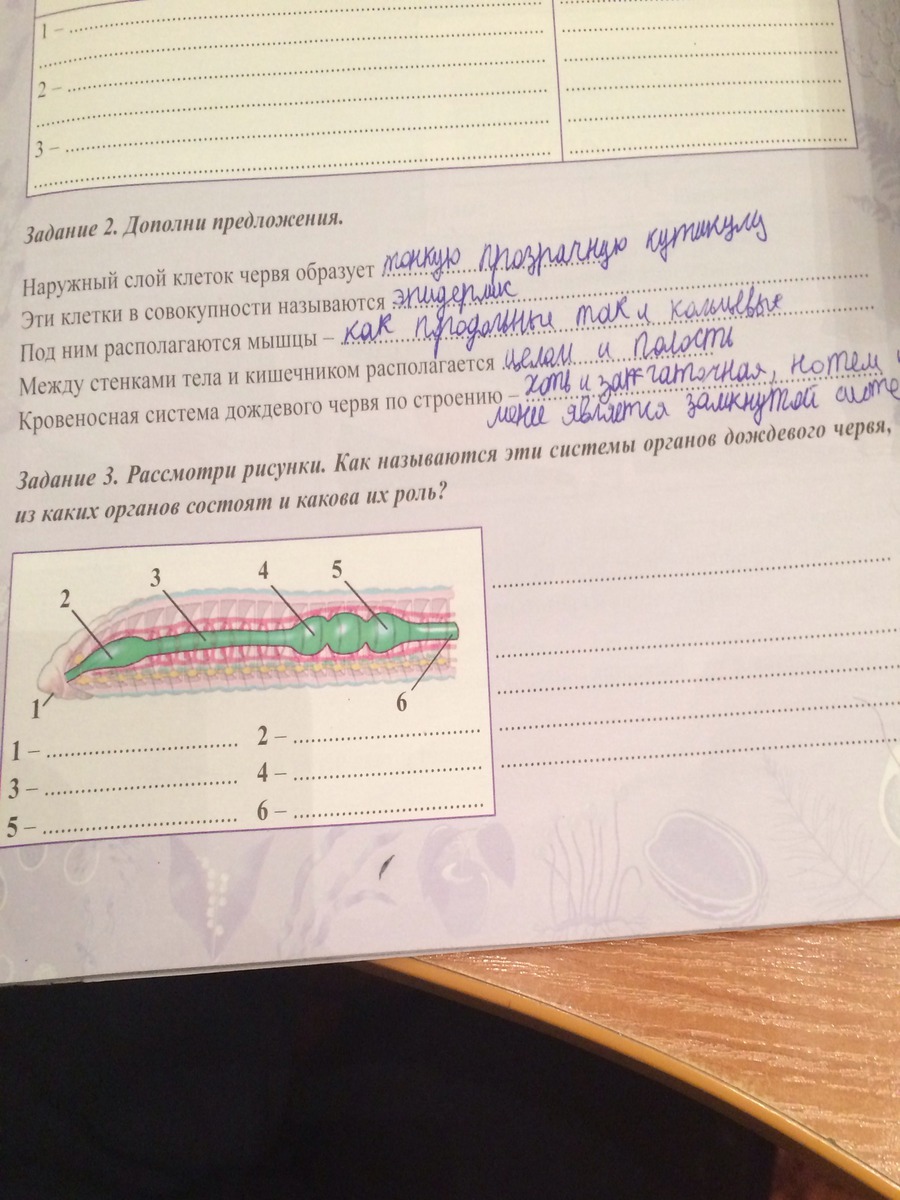 1 – ....................
2 – ....................
3 – ....................
Задание 2. Дополни предложения.
Наружный слой клеток червя образует тонкую прозрачную кутикулу
Эти клетки в совокупности называются эпидермис
Под ним располагаются мышцы – как продольные так и кольцевые
Между стенками тела и кишечником располагается целом и полость
Кровеносная система дождевого червя по строению – хоть и зачаточная, но тем
менее является замкнутой систе
Задание 3. Рассмотри рисунки. Как называются эти системы органов дождевого червя,
из каких органов состоят и какова их роль?
2 3 4 5
1 6
1 – .................... 2 – ....................
3 – .................... 4 – ....................
5 – .................... 6 – ....................